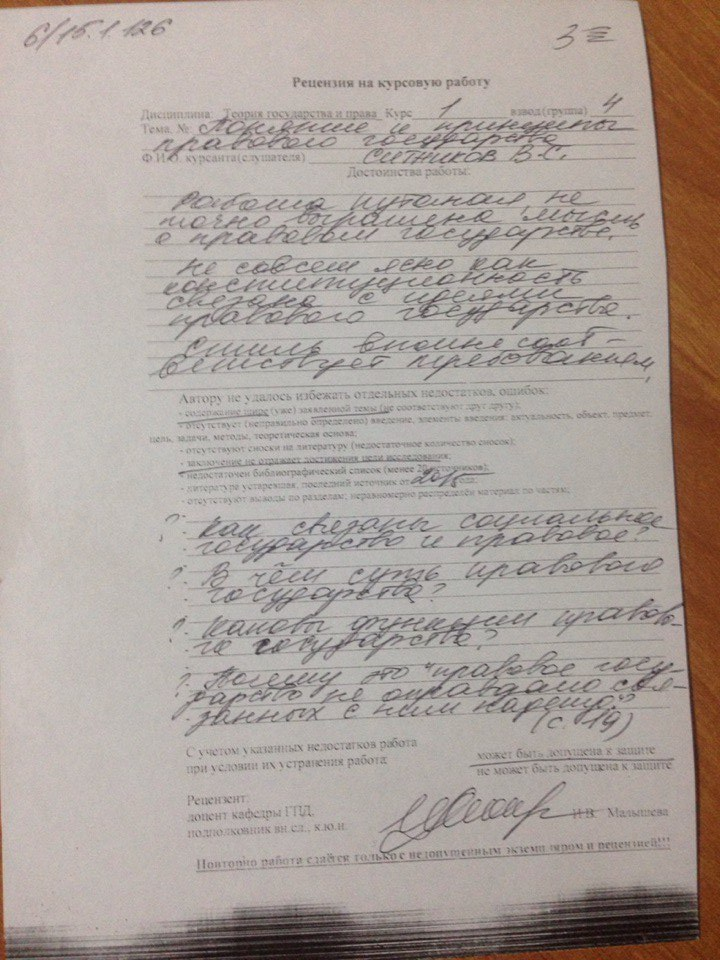 6/15.1.126
3
Рецензия на курсовую работу
Дисциплина: Теория государства и права Курс 1 взвод (группа) 4
Тема. № Понятие и принципы
правового государства
Ф.И.О. курсанта (слушателя) Ситников В.С.
Достоинства работы:
Работа путаная не
точно выражена мысль
о правовом государстве.
Не совсем ясно как
конституционность
связана с идеями
правового государства.
Стиль вполне соот-
ветствует требованием,
Автору не удалось избежать отдельных недостатков, ошибок:
- содержание шире (уже) заявленной темы (не соответствуют друг другу);
- отсутствует (неправильно определено) введение, элементы введения: актуальность, объект, предмет,
цель, задачи, методы, теоретическая основа;
- отсутствуют сноски на литературу (недостаточное количество сносок);
- заключение не отражает достижения цели исследования;
- недостаточен библиографический список (менее 20 источников);
- литература устаревшая, последний источник от года;
- отсутствуют выводы по разделам; неравномерно распределён материал по частям;
? - Как связаны социальное
государство и правовое?
? - В чём суть правового
государства?
? - Каковы функции правово-
го государства?
? - Почему это "правовое госу-
дарство не оправдало свя-
занных с ним надежд"?
(с. 19)
С учетом указанных недостатков работа
при условии их устранения работа:
может быть допущена к защите
не может быть допущена к защите
Рецензент:
доцент кафедры ГПД,
подполковник вн.сл., к.ю.н.
И.В. Малышева
Повторно работа сдаётся только с недопущенным экземпляром и рецензией!!!